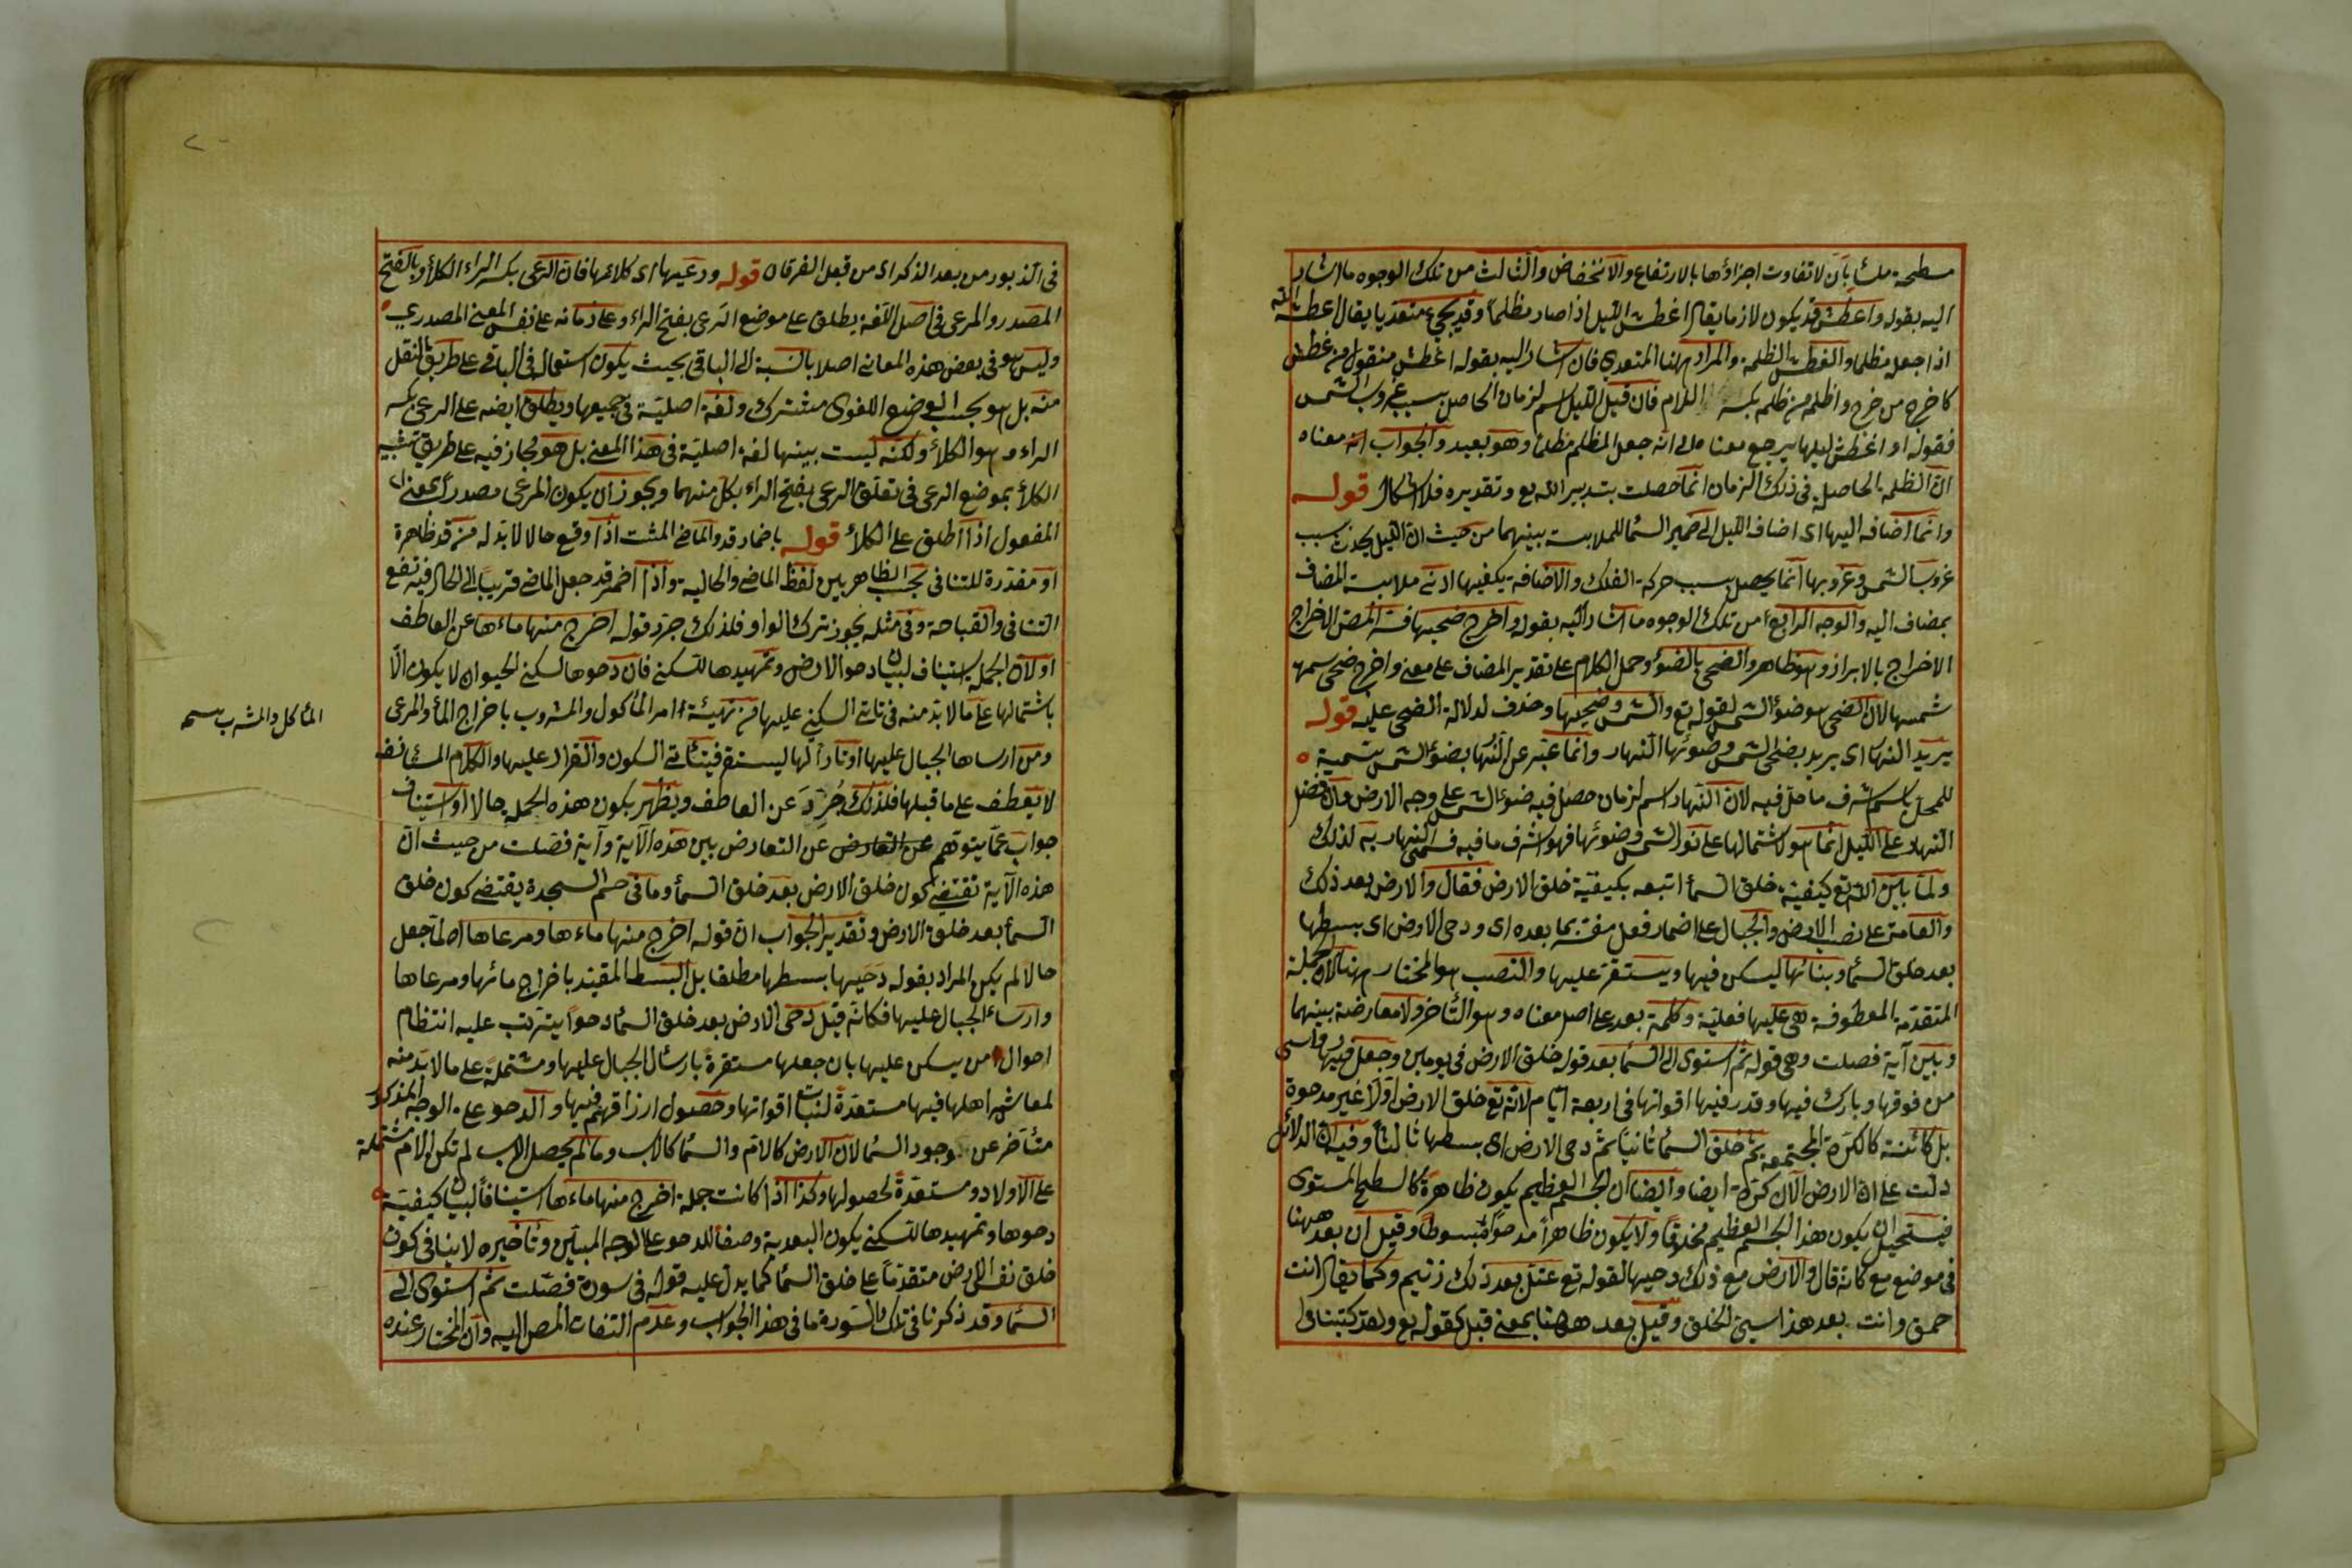 سطحة ملسا بان لا تفاوت اجزاؤها بالارتفاع والانخفاض والثالث من تلك الوجوه ما اشار
اليه بقوله واغطش قد يكون لازما يقال اغطش الليل اذا صار مظلما وقد يجيء متعديا يقال اغطشه الله
اذا جعله مظلما والغطش الظلمة والمراد ههنا المتعدي فان اشار اليه بقوله اغطش منقول من غطش
كاخرج من خرج واظلم من ظلم بكسر اللام فان قيل الليل اسم لزمان الحاصل بسبب غروب الشمس
فقوله او اغطش ليلها يرجع معناه الى انه جعل المظلم مظلما وهو بعيد والجواب انه معناه
ان الظلمة الحاصلة فى ذلك الزمان انما حصلت بتدبير الله تع وتقديره فلا اشكال قوله
وانما اضافه اليها اى اضاف الليل الى ضمير السما للملابسة بينهما من حيث ان الليل يحدث بسبب
غروب الشمس وغروبها انما يحصل بسبب حركة الفلك والاضافة يكفيها ادنى ملابسة المضاف
بمضاف اليه والوجه الرابع من تلك الوجوه ما اشار اليه بقوله واخرج ضحيها فسر المص الاخراج
الاخراج بالابراز وهو ظاهر والضحى بالضوء وحمل الكلام على تقدير المضاف على معنى واخرج ضحى سمها
شمسها لان الضحى هو ضوء الشمس لقوله تع والشمس وضحيها وحذف لدلالة الضحى عليه قوله
يريد النهار اى يريد بضحى الشمس وضوئها النهار وانما عبر عن النهار بضوء الشمس تسمية
للمحل باسم اشرف ما حل فيه لان النهار اسم لزمان حصل فيه ضوء الشمس على وجه الارض وان فضل
النهار على الليل انما هو لاشتمالها على نور الشمس وضوئها فهو اشرف ما فيه فسمى النهار به لذلك
ولما بين الله تع كيفية خلق السما اتبعه بكيفية خلق الارض فقال والارض بعد ذلك
والعامة على نصب الارض والجبال على اضمار فعل مفسر بما بعده اى ودحى الارض اى بسطها
بعد خلق السما وبنائها ليسكن فيها ويستقر عليها والنصب هو المختار ههنا لان الجملة
المتقدمة المعطوفة هى عليها فعلية وكلمة بعد على اصل معناه وهو التأخر ولا معارضة بينهما
وبين آية فصلت وهى قوله ثم استوى الى السما بعد قوله خلق الارض فى يومين وجعل فيها رواسى
من فوقها وبارك فيها وقدر فيها اقواتها فى اربعة ايام لانه تع خلق الارض اولا غير مدحوة
بل كائنة كالكرة المجتمعة ثم خلق السما ثانيا ثم دحى الارض اى بسطها ثالثا وفيه ان الدلائل
دلت على ان الارض الآن كرة ايضا وايضا ان الجسم العظيم يكون ظاهره كالسطح المستوى
فيستحيل ان يكون هذا الجسم العظيم مخلوقا ولا يكون ظاهرا مدحوا مبسوطا وقيل ان بعد ههنا
فى موضع مع كانه قال والارض مع ذلك دحيها لقوله تع عتل بعد ذلك زنيم وكما يقال انت
حمق وانت بعد هذا سيئ الخلق وقيل بعد ههنا بمعنى قبل كقوله تع ولقد كتبنا فى
فى الذبور من بعد الذكر اى من قبل الفرقان قوله ورعيها اى كلائها فان الرعى بكسر الراء الكلأ وبالفتح
المصدر والمرعى فى اصل اللغة يطلق على موضع الرعى بفتح الراء وعلى زمانه على نفس المعنى المصدري
وليس هو فى بعض هذه المعانى اصلا بالنسبة الى الباقى بحيث يكون استعماله فى الباقى على طريق النقل
منه بل هو بحسب الوضع اللغوى مشترك ولغة اصلية فى جميعها ويطلق ايضا على الرعى بكسر
الراء وهو الكلأ ولكنه ليست بينها لغة اصلية فى هذا المعنى بل هو مجاز فيه على طريق تشبيه
الكلأ بموضع الرعى فى تعلق الرعى بفتح الراء بكل منهما ويجوز ان يكون المرعى مصدرا بمعنى
المفعول اذا اطلق على الكلأ قوله باضمار قد والماضى المثبت اذا وقع حالا لا بد له من قد ظاهرة
او مقدرة للتنافى بحسب الظاهر بين لفظ الماضى والحالية واذا اضمر قد جعل الماضى قريبا الى الحال فيرتفع
التنافى والقباحة وفى مثله يجوز ترك الواو فلذلك جرد قوله اخرج منها ماءها عن العاطف
او لان الجملة استيناف لبيان دحو الارض وتمهيدها للسكنى فان دحوها لسكنى الحيوان لا يكون الا
باشتمالها على ما لا بد منه فى تاتى السكنى عليها من تهيئة امر المأكول والمشروب باخراج الماء والمرعى
ومن ارساها الجبال عليها اوتادا لها ليستقر فيتأتى السكون والقرار عليها والكلام المستأنف
لا يعطف على ما قبلها فلذلك جرد عن العاطف ويظهر بكون هذه الجملة حالا او استيناف
جواب عما يتوهم عن التعارض عن التعارض بين هذه الآية وآية فصلت من حيث ان
هذه الآية تقتضى كون خلق الارض بعد خلق السما وما فى حم السجدة يقتضى كون خلق
السما بعد خلق الارض وتقدير الجواب ان قوله اخرج منها ماءها ومرعاها لما جعل
حالا لم يكن المراد بقوله دحيها بسطها مطلقا بل البسط المقيد باخراج مائها ومرعاها
وارساء الجبال عليها فكانه قيل دحى الارض بعد خلق السما دحوا يترتب عليه انتظام
احوال من يسكن عليها بان جعلها مستقرة بارسال الجبال عليها ومشتملة على ما لا بد منه
لمعاش اهلها فيها مستعدة لنبات اقواتها وحصول ارزاقهم فيها والدحو على الوجه المذكور
متأخر عن وجود السما لان الارض كالام والسما كالاب وما لم يحصل الاب لم تكن الام مشتملة
على الاولاد ومستعدة لحصولها وكذا اذا كانت جملة اخرج منها ماءها استينافا لبيان كيفية
دحوها وتمهيدها للسكنى يكون البعدية وصفا للدحو على الوجه المبين وتأخيره لا ينافى كون
خلق نفس الارض متقدما على خلق السما كما يدل عليه قوله فى سورة فصلت ثم استوى الى
السما وقد ذكرنا فى تلك السورة ما فى هذا الجواب وعدم التفات المص اليه وان المختار عنده
المأكل والمشرب